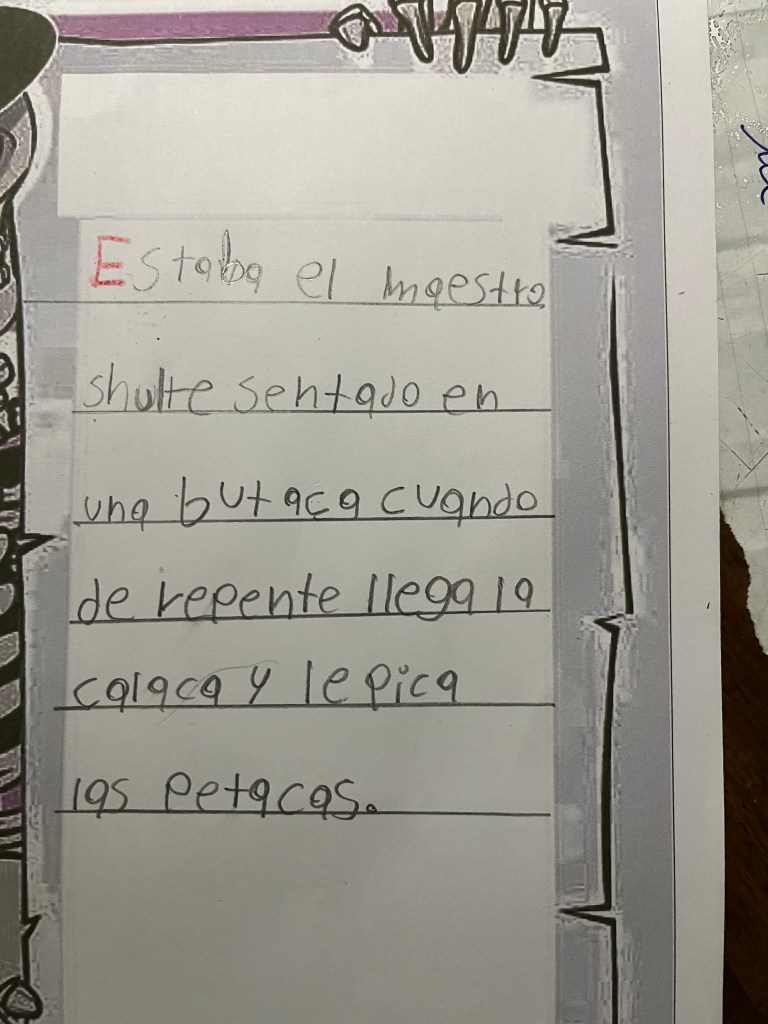 Estaba el maestro
shulte sentado en
una butaca cuando
de repente llega la
calaca y le pica
las petacas.